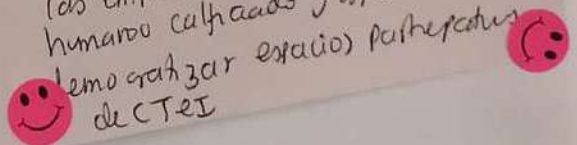 las
humano calificado y
democratizar espacios participativos
de CTeI